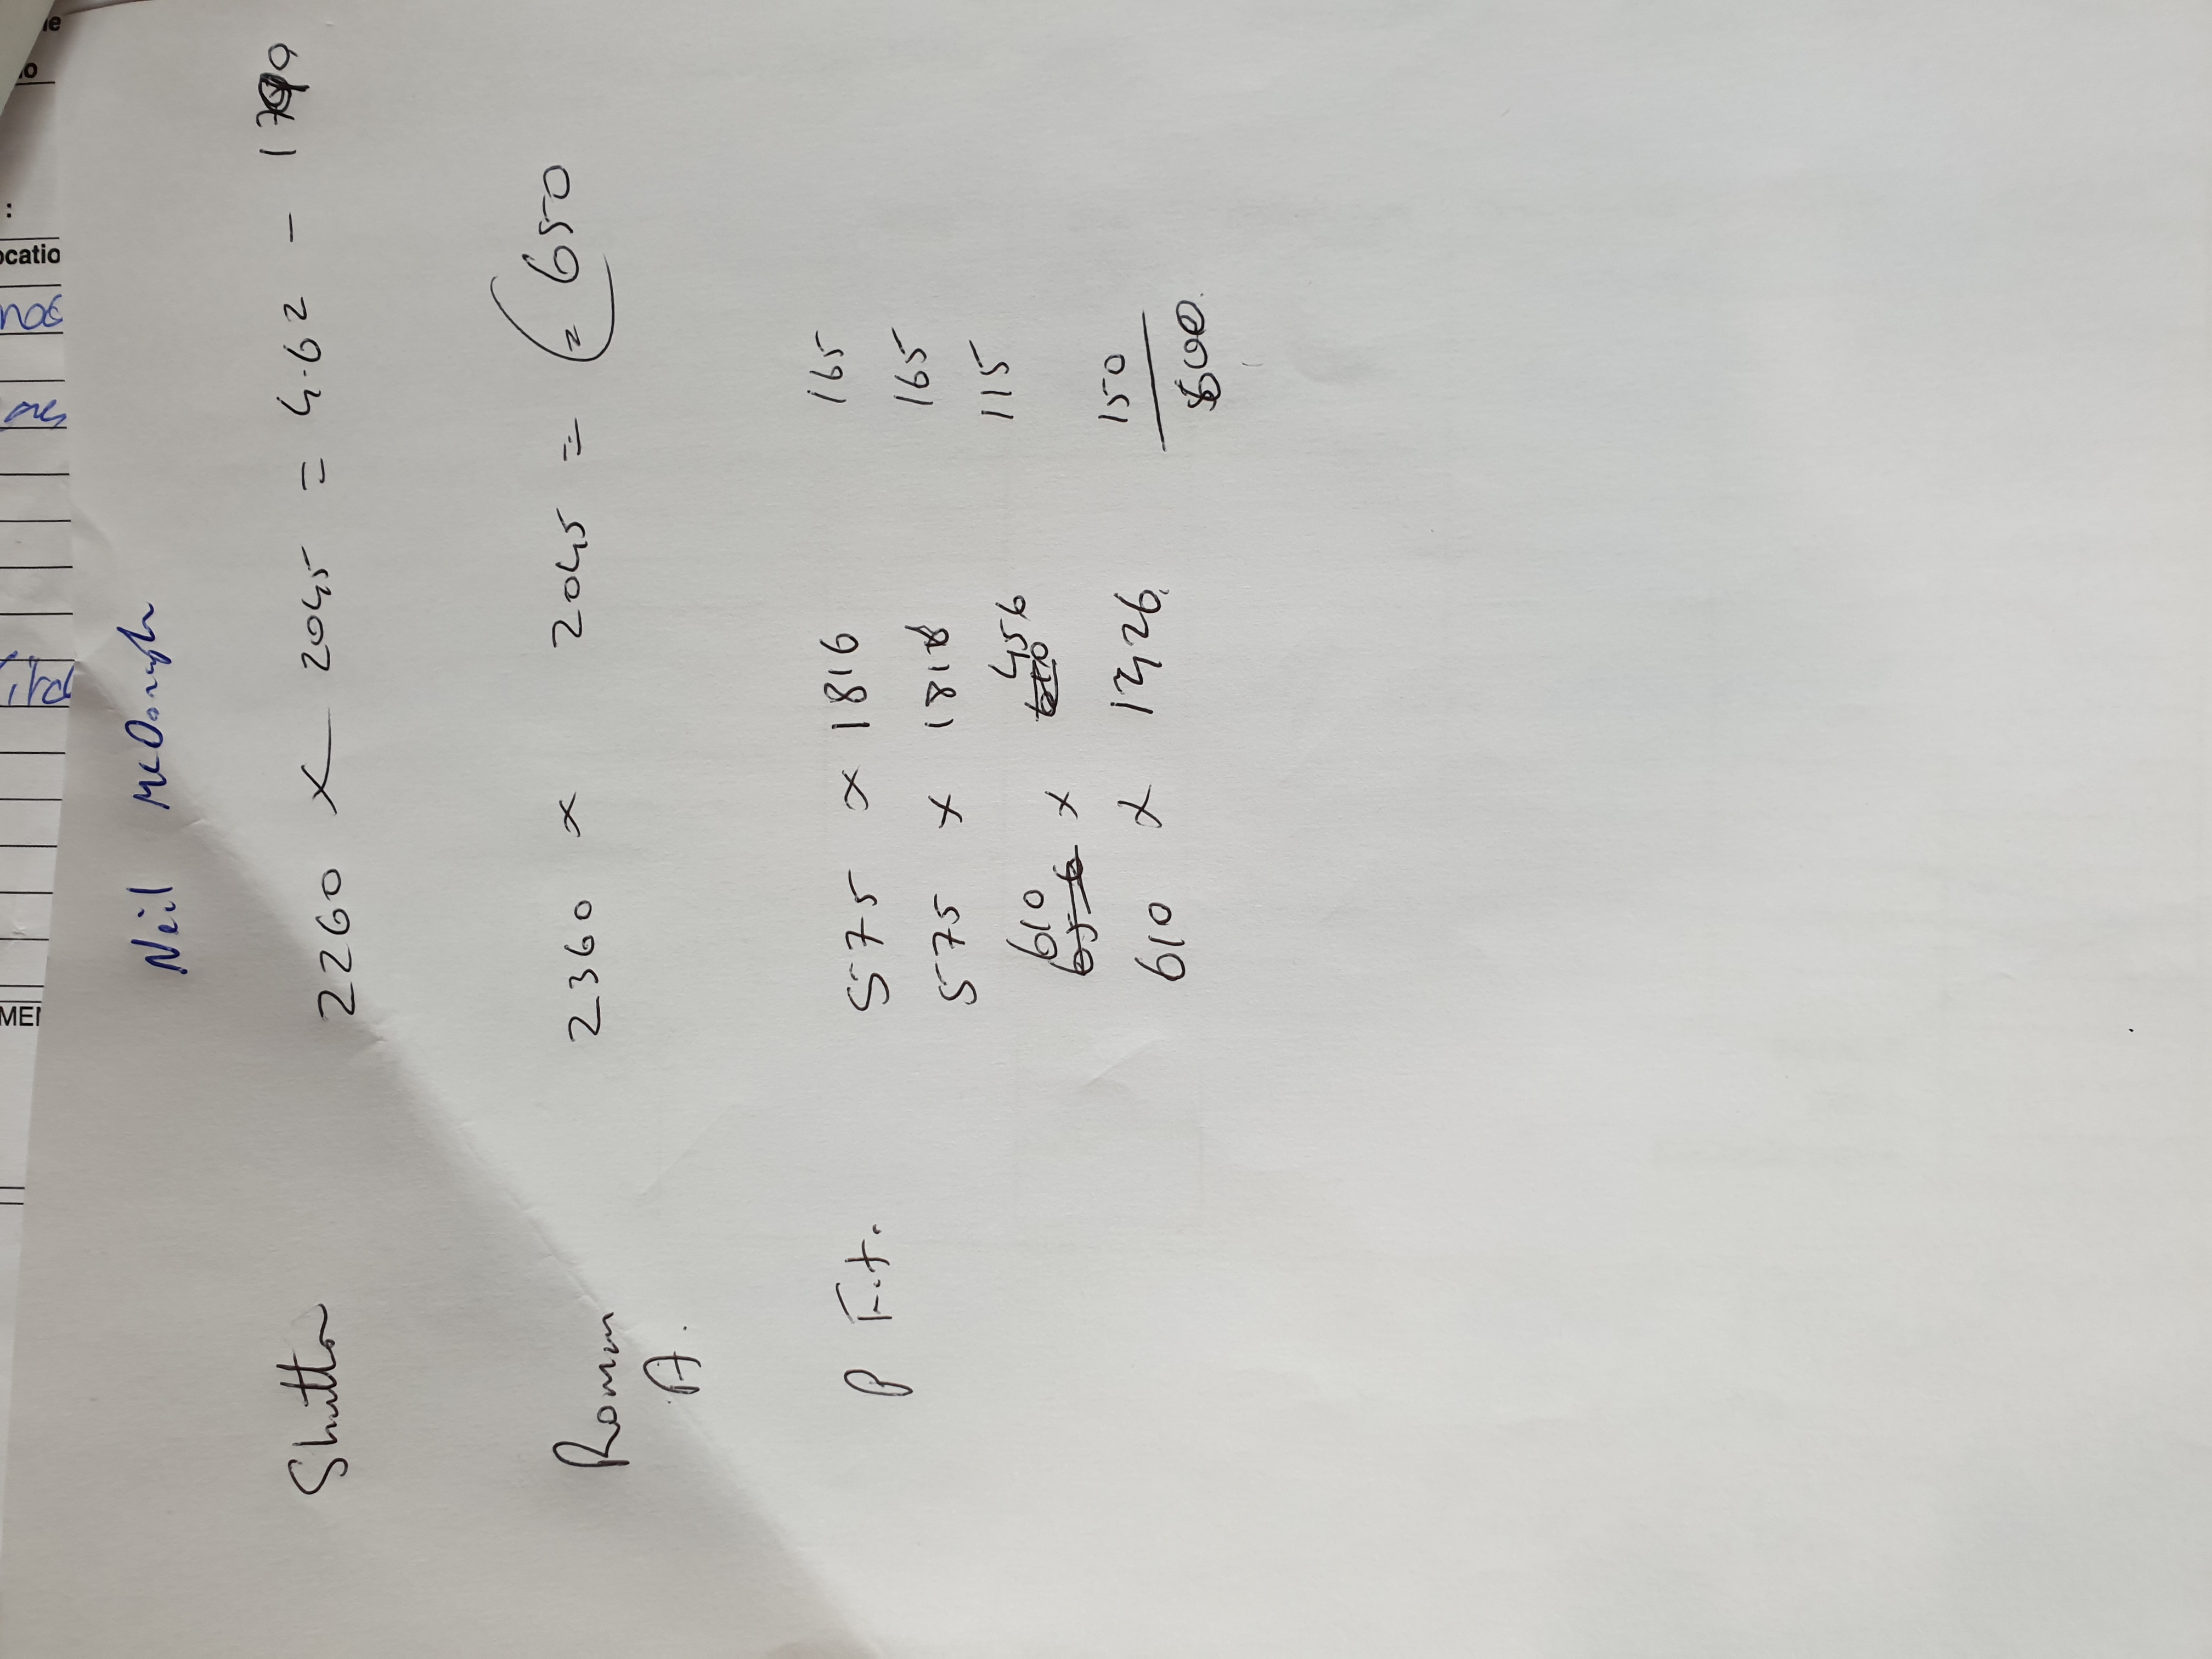 Neil McDonagh
Shutter 2260 x 2045 = 4.62 - 1799
Roman 2360 x 2045 = (= 650
A.
P Fit. 575 x 1816 165
575 x 1818 165
610 x 456 115
610 x 1426 150
600
ocatio
MEN